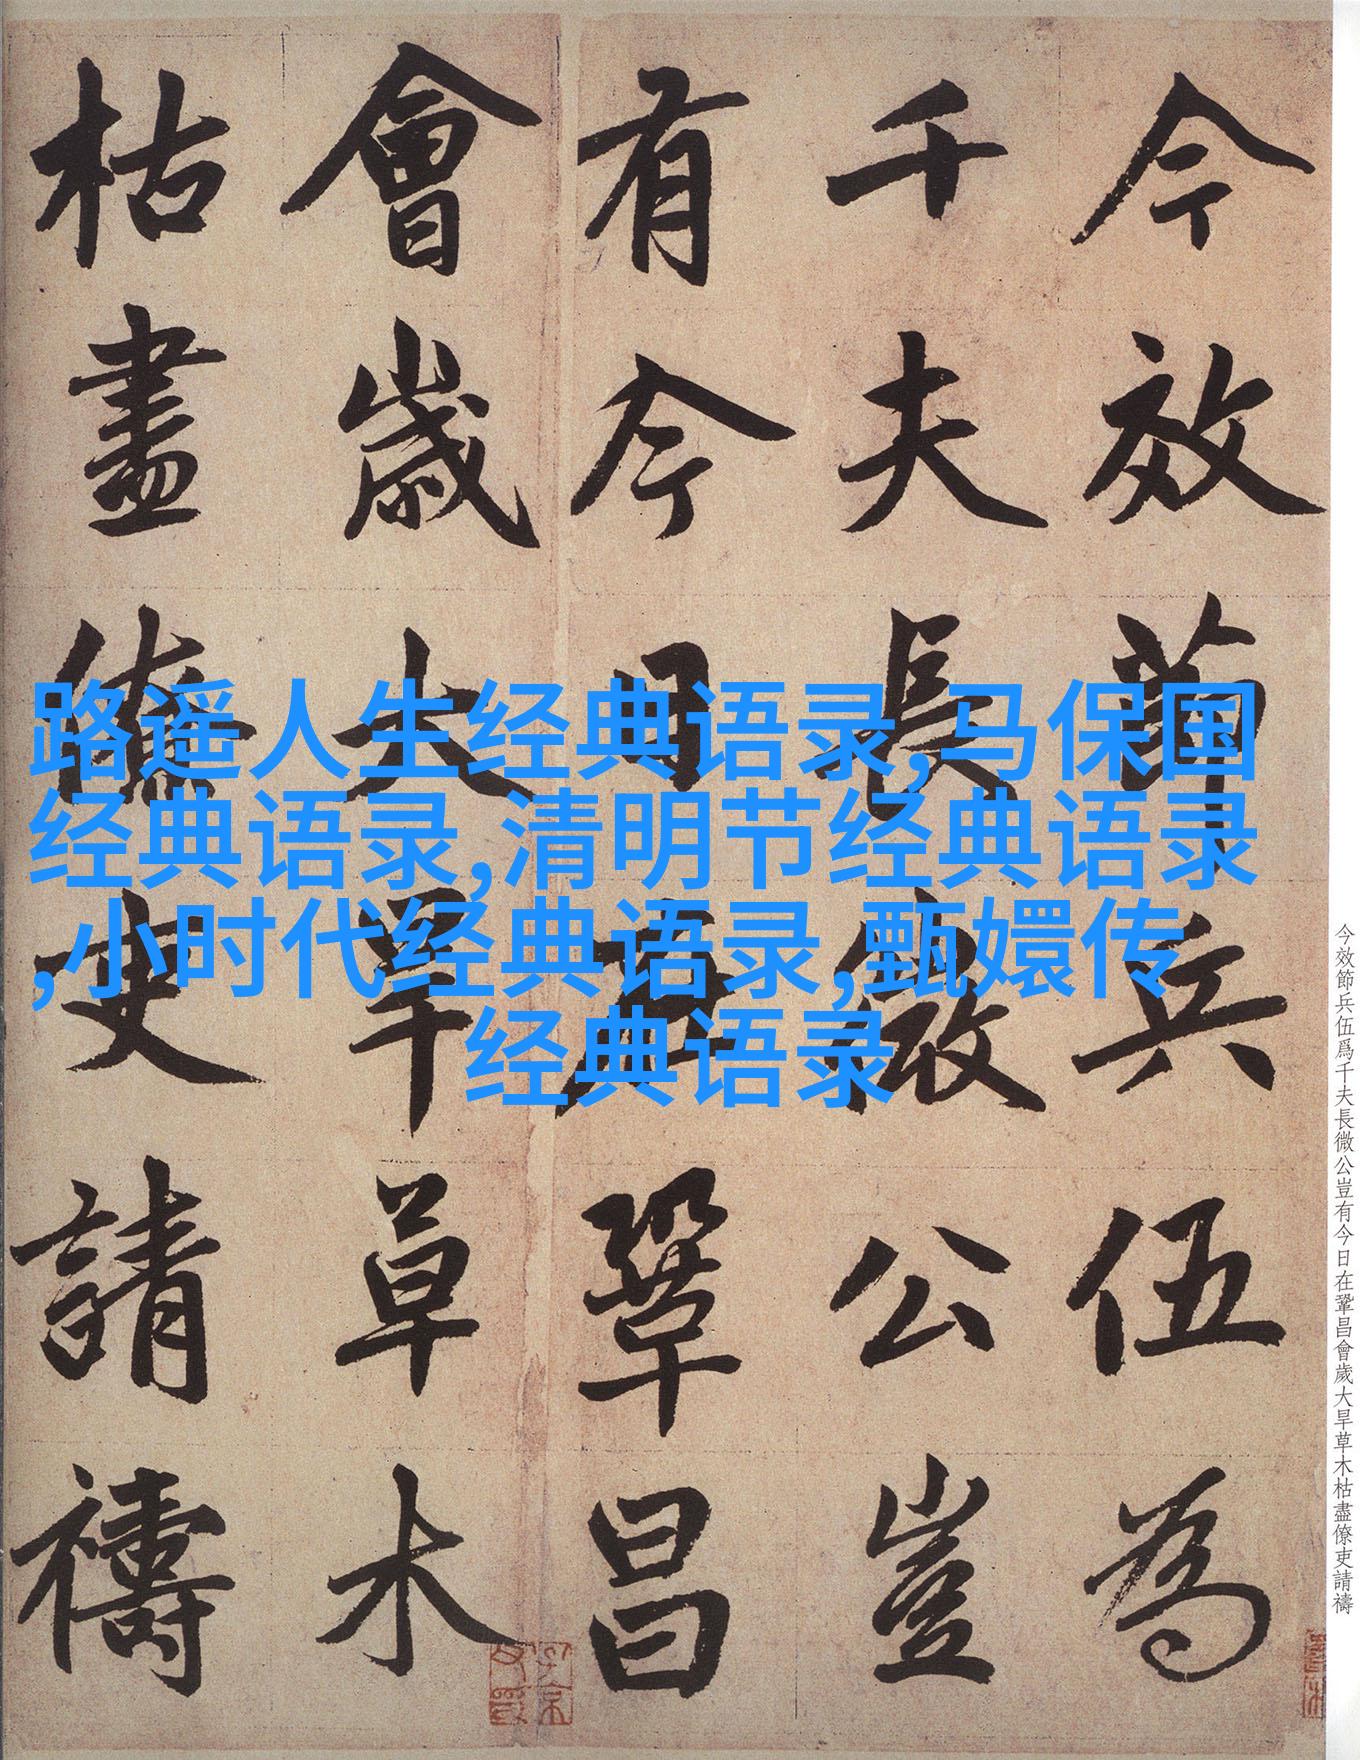 今效節兵伍為
千夫長微公豈
有今日在鞏昌
會歲大旱草木
枯盡僚吏請禱
路遥人生经典语录,马保国
经典语录,清明节经典语录
,小时代经典语录,甄嬛传
经典语录
今效節兵伍爲千夫長微公豈有今日在鞏昌會歲大旱草木枯盡僚吏請禱